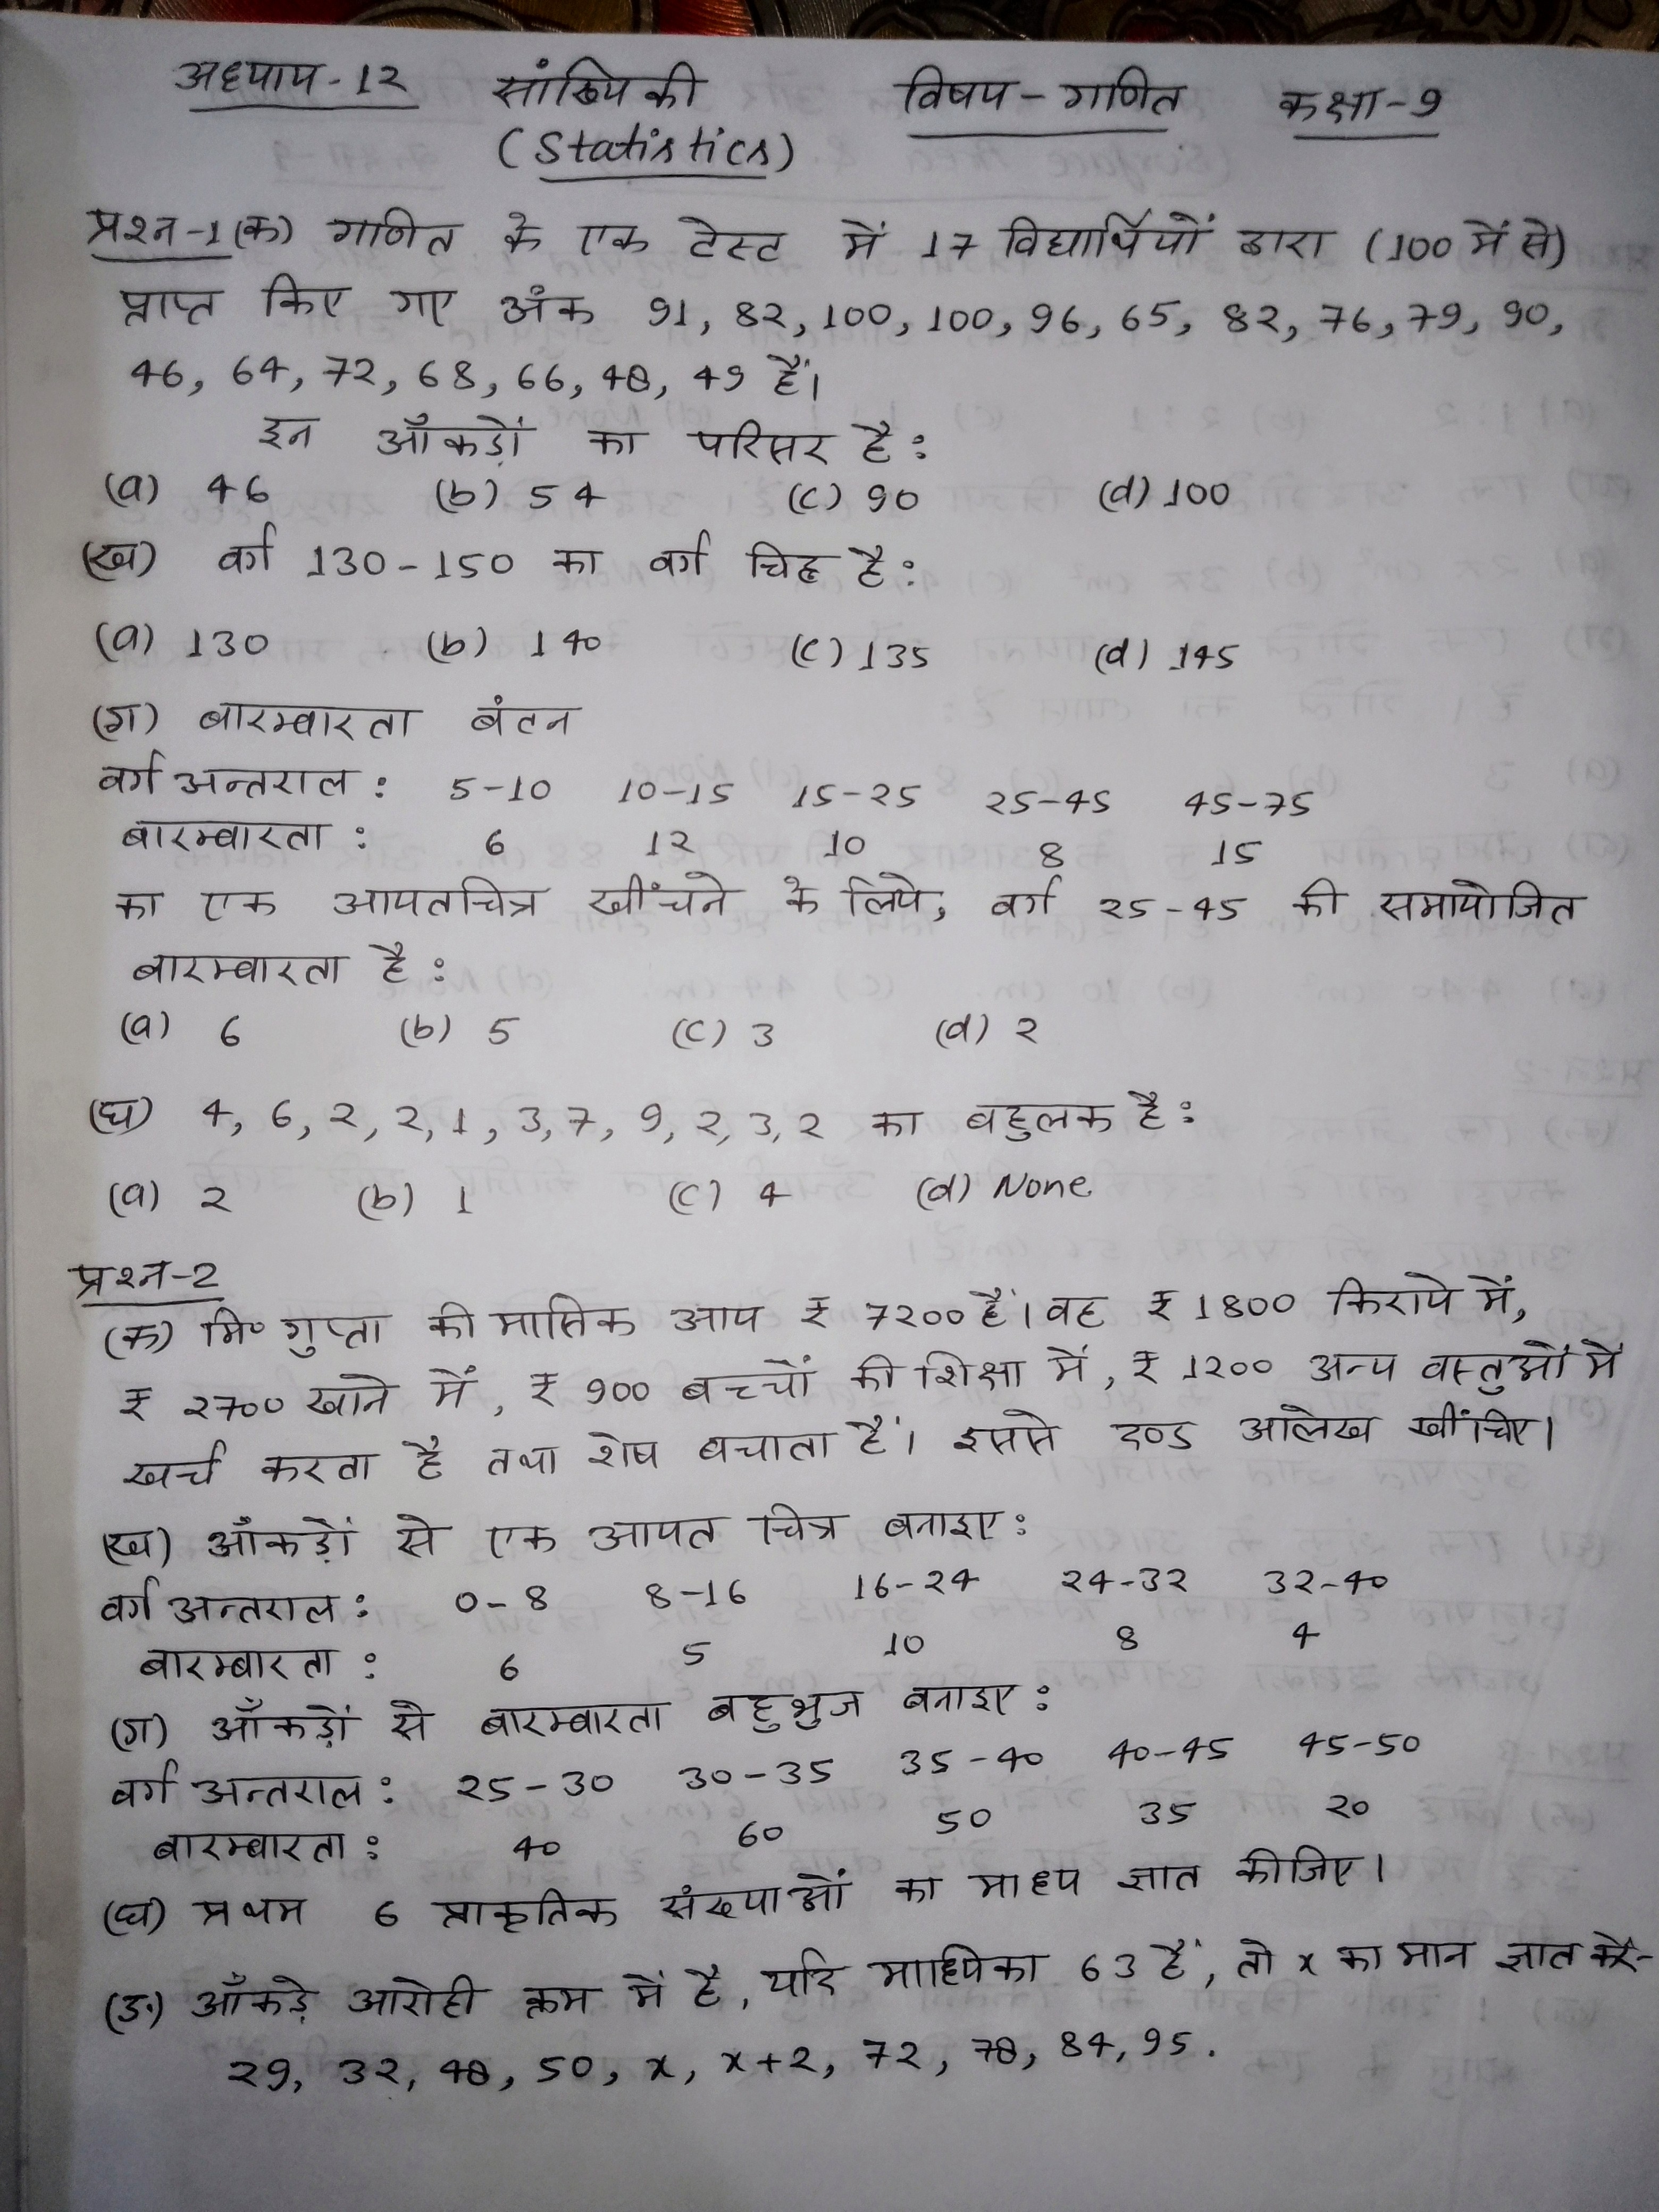 अध्याय-12 सांख्यिकी विषय-गणित कक्षा-9
(Statistics)
प्रश्न-1(क) गणित के एक टेस्ट में 17 विद्यार्थियों द्वारा (100 में से)
प्राप्त किए गए अंक 91, 82, 100, 100, 96, 65, 82, 76, 79, 90,
46, 64, 72, 68, 66, 48, 49 हैं।
इन आँकड़ों का परिसर है:
(a) 46 (b) 54 (c) 90 (d) 100
(ख) वर्ग 130-150 का वर्ग चिह्न है:
(a) 130 (b) 140 (c) 135 (d) 145
(ग) बारम्बारता बंटन
वर्ग अन्तराल: 5-10 10-15 15-25 25-45 45-75
बारम्बारता: 6 12 10 8 15
का एक आयतचित्र खींचने के लिये, वर्ग 25-45 की समायोजित
बारम्बारता है:
(a) 6 (b) 5 (c) 3 (d) 2
(घ) 4, 6, 2, 2, 1, 3, 7, 9, 2, 3, 2 का बहुलक है:
(a) 2 (b) 1 (c) 4 (d) None
प्रश्न-2
(क) मि० गुप्ता की मासिक आय ₹ 7200 है। वह ₹ 1800 किराये में,
₹ 2700 खाने में, ₹ 900 बच्चों की शिक्षा में, ₹ 1200 अन्य वस्तुओं में
खर्च करता है तथा शेष बचाता है। इससे दण्ड आलेख खींचिए।
(ख) आँकड़ों से एक आयत चित्र बनाइए:
वर्ग अन्तराल: 0-8 8-16 16-24 24-32 32-40
बारम्बारता: 6 5 10 8 4
(ग) आँकड़ों से बारम्बारता बहुभुज बनाइए:
वर्ग अन्तराल: 25-30 30-35 35-40 40-45 45-50
बारम्बारता: 40 60 50 35 20
(घ) प्रथम 6 प्राकृतिक संख्याओं का माध्य ज्ञात कीजिए।
(ङ) आँकड़े आरोही क्रम में है, यदि माध्यिका 63 है, तो x का मान ज्ञात करें-
29, 32, 48, 50, x, x+2, 72, 78, 84, 95.